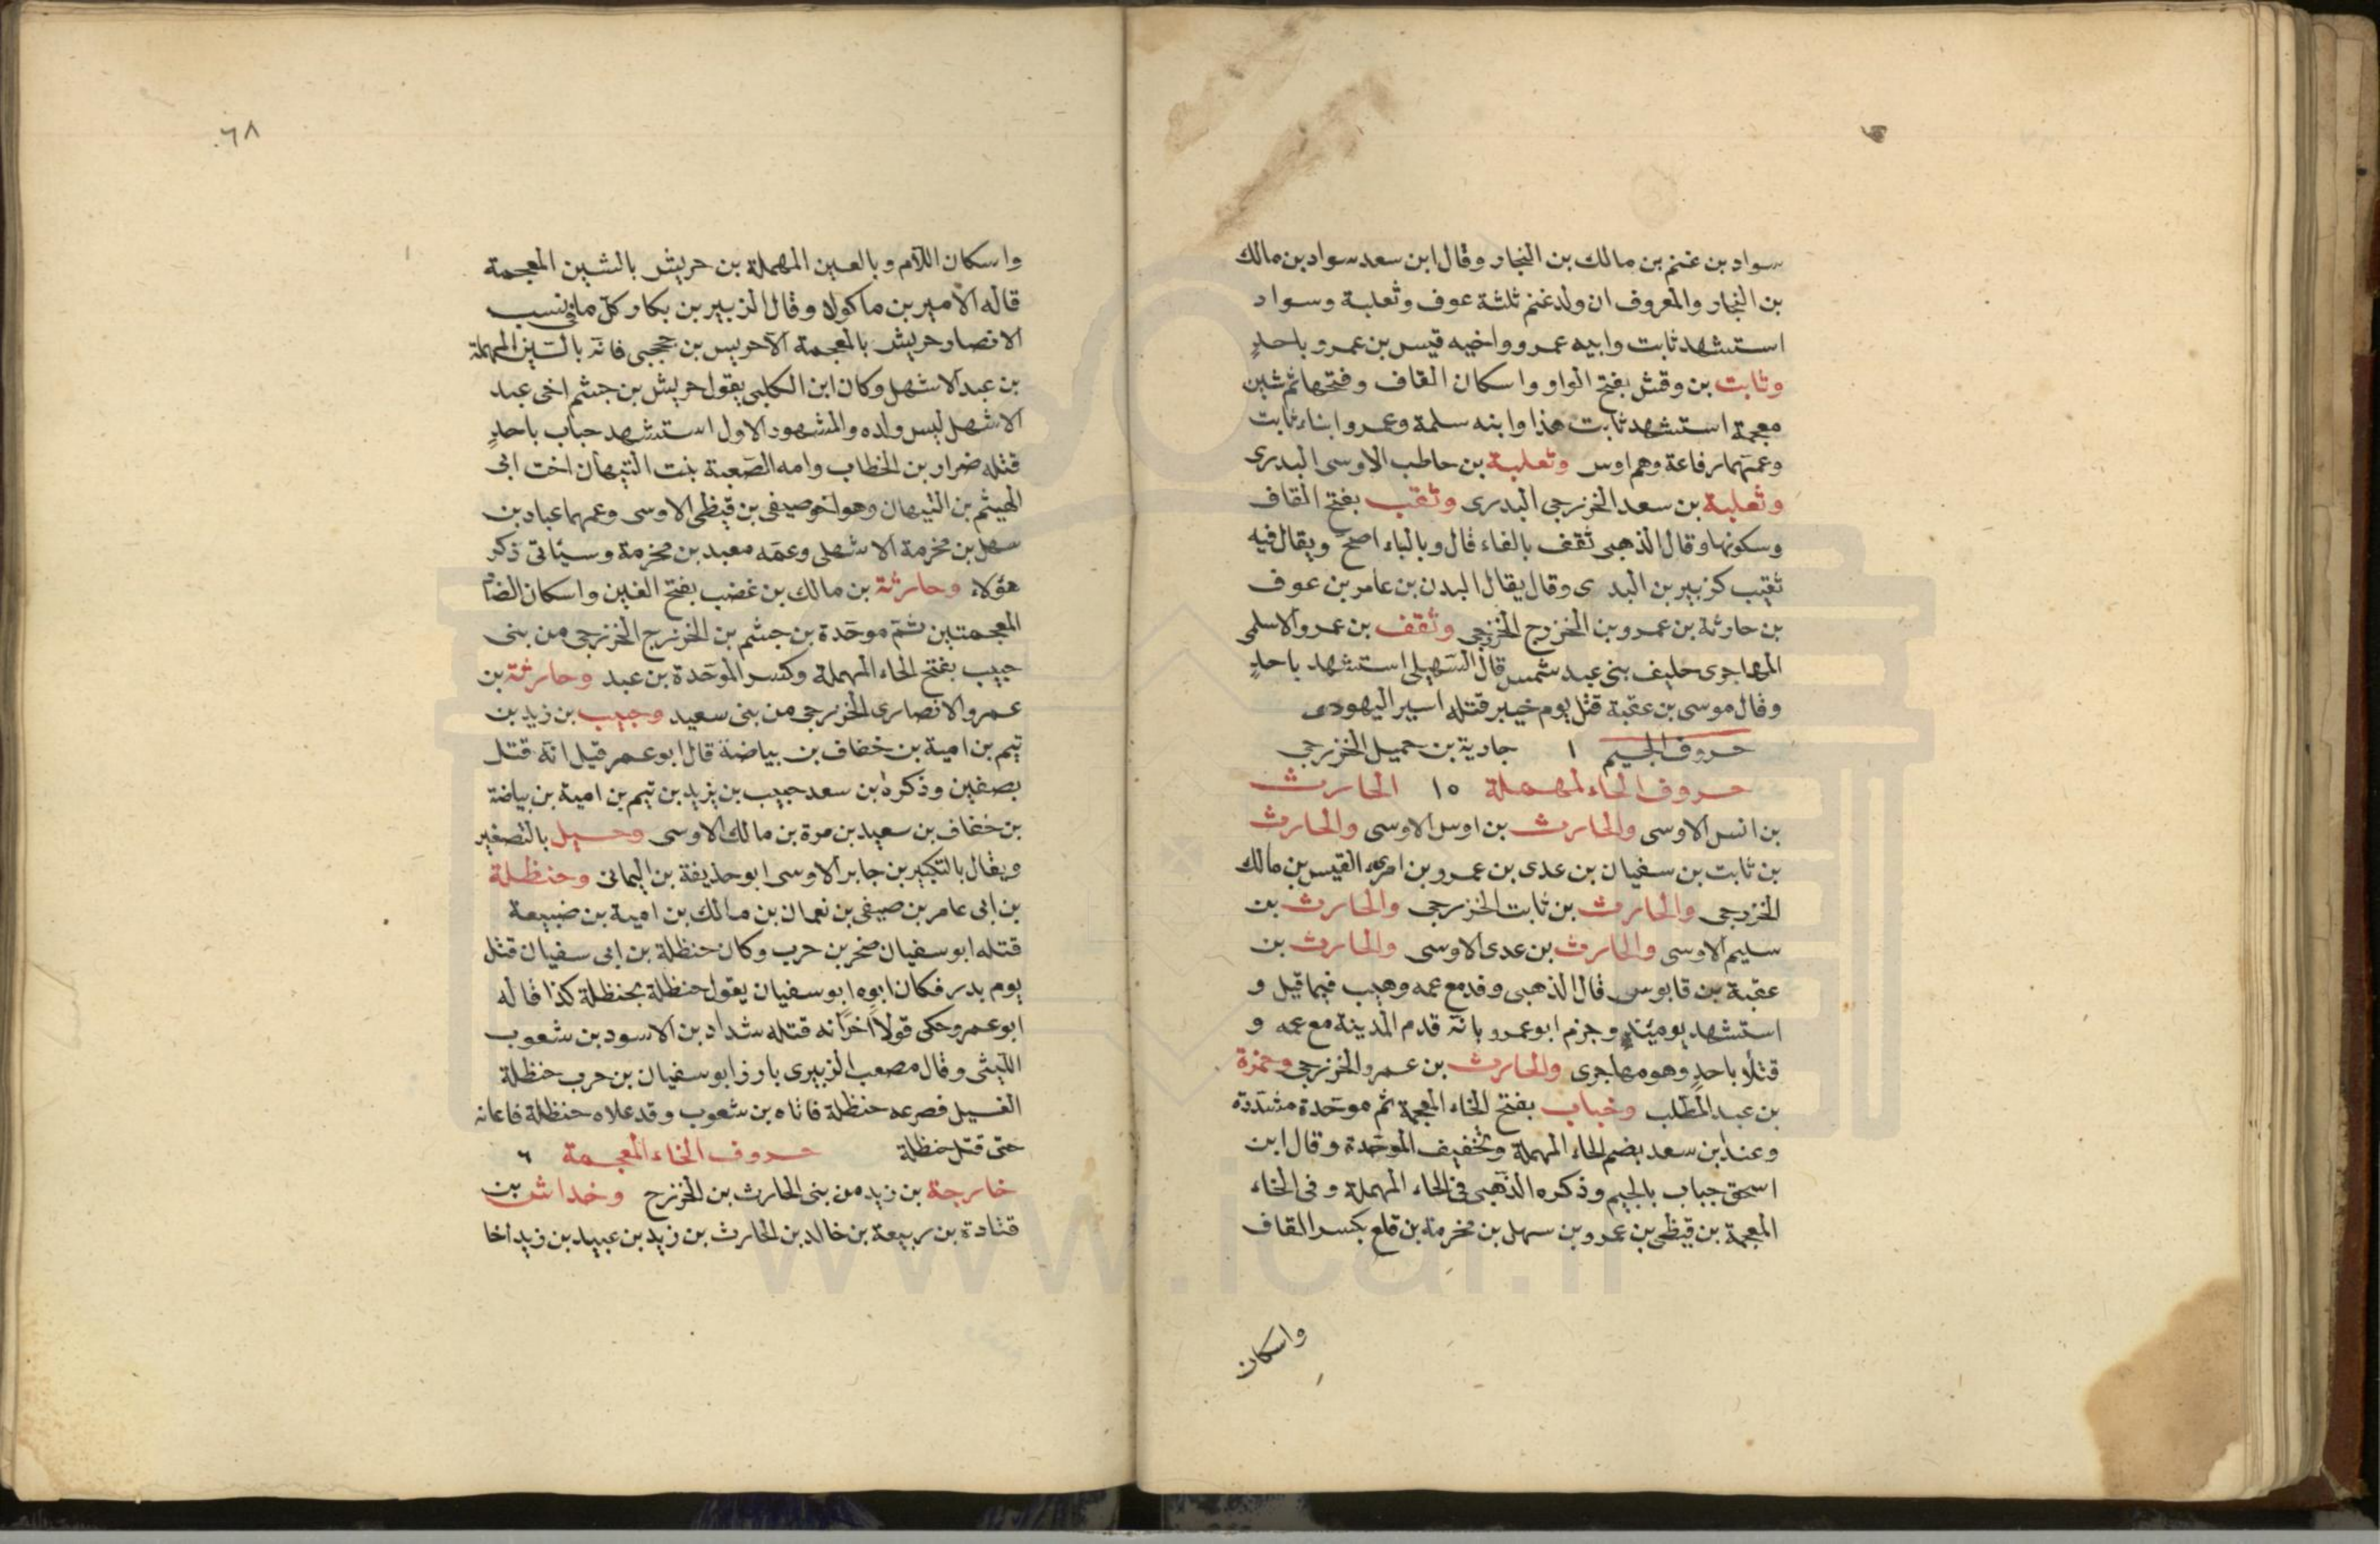 سواد بن غنم بن مالك بن النجار وقال ابن سعد سواد بن مالك
بن النجار والمعروف ان ولد غنم ثلثة عوف وثعلبة وسواد
استشهد ثابت وابيه عمرو واخيه قيس بن عمرو باحدٍ
وثابت بن وقش بفتح الواو واسكان القاف وفتحها ثم شين
معجمة استشهد ثابت هذا وابنه سلمة وعمرو ابناء ثابت
وعمتهما رفاعة وهم اوس وثعلبة بن حاطب الاوسى البدرى
وثعلبة بن سعد الخزرجى البدرى وثقب بفتح القاف
وسكونها وقال الذهبى ثقف بالفاء قال وبالباء اصح ويقال فيه
ثقيب كزبير بن البدى وقال يقال البدن بن عامر بن عوف
بن حارثة بن عمرو بن الخزرج الخزرجى وثقف بن عمرو الاسلمى
المهاجرى حليف بنى عبد شمس قال السهيلى استشهد باحدٍ
وقال موسى بن عقبة قتل يوم خيبر قتله اسير اليهودى
حروف الجيم ١ جارية بن حميل الخزرجى
حروف الحاء المهملة ١٥ الحارث
بن انس الاوسى والحارث بن اوس الاوسى والحارث
بن ثابت بن سفيان بن عدى بن عمرو بن امرىء القيس بن مالك
الخزرجى والحارث بن ثابت الخزرجى والحارث بن
سليم الاوسى والحارث بن عدى الاوسى والحارث بن
عقبة بن قابوس قال الذهبى وفد مع عمه وهيب فيما قيل و
استشهد يومئذٍ وجزم ابو عمرو بانّه قدم المدينة مع عمه و
قتلا باحدٍ وهو مهاجرى والحارث بن عمرو الخزرجى وحمزة
بن عبد المطّلب وخباب بفتح الخاء المعجمة ثم موحّدة مشدّدة
وعند ابن سعد بضم الحاء المهملة وتخفيف الموحّدة وقال ابن
اسحق جباب بالجيم وذكره الذّهبى فى الحاء المهملة وفى الخاء
المعجمة بن قيظى بن عمرو بن سهل بن مخرمة بن قلع بكسر القاف
واسكان
٦٨
واسكان اللّام وبالعين المهملة بن حريش بالشين المعجمة
قاله الامير بن ماكولا وقال الزبير بن بكار كلّ ما فى نسب
الانصار حريش بالمعجمة الا حريس بن جحجبى فانّه بالسّين المهملة
بن عبد الاشهل وكان ابن الكلبى يقول حريش بن جشم اخى عبد
الاشهل ليس ولده والمشهود الاول استشهد حباب باحدٍ
قتله ضرار بن الخطاب وامه الصّعبة بنت التيهان اخت ابى
الهيثم بن التيهان وهو اخو صيفى بن قيظى الاوسى وعمهما عباد بن
سهل بن مخرمة الاشهلى وعمّه معبد بن مخرمة وسيأتى ذكر
هؤلاء وحارثة بن مالك بن غضب بفتح الغين واسكان الضاد
المعجمتين ثمّ موحّدة بن جشم بن الخزرج الخزرجى من بنى
حبيب بفتح الحاء المهملة وكسر الموحّدة بن عبد وحارثة بن
عمرو الانصارى الخزرجى من بنى سعيد وحبيب بن زيد بن
تيم بن امية بن خفاف بن بياضة قال ابو عمر قيل انّه قتل
بصفين وذكره بن سعد حبيب بن يزيد بن تيم بن امية بن بياضة
بن خفاف بن سعيد بن مرة بن مالك الاوسى وحسيل بالتصغير
ويقال بالتكبير بن جابر الاوسى ابو حذيفة بن اليمانى وحنظلة
بن ابى عامر بن صيفى بن نعمان بن مالك بن امية بن ضبيعة
قتله ابو سفيان صخر بن حرب وكان حنظلة بن ابى سفيان قتل
يوم بدر فكان ابوه ابو سفيان يقول حنظلة بحنظلة كذا قاله
ابو عمرو وحكى قولاً آخر انه قتله شداد بن الاسود بن شعوب
اللّيثى وقال مصعب الزبيرى بارز ابو سفيان بن حرب حنظلة
الغسيل فصرعه حنظلة فاتاه بن شعوب وقد علاه حنظلة فاعانه
حتى قتل حنظلة حروف الخاء المعجمة ٦
خارجة بن زيد من بنى الحارث بن الخزرج وخداش بن
قتادة بن ربيعة بن خالد بن الحارث بن زيد بن عبيد بن زيد اخا
www.ical.ir